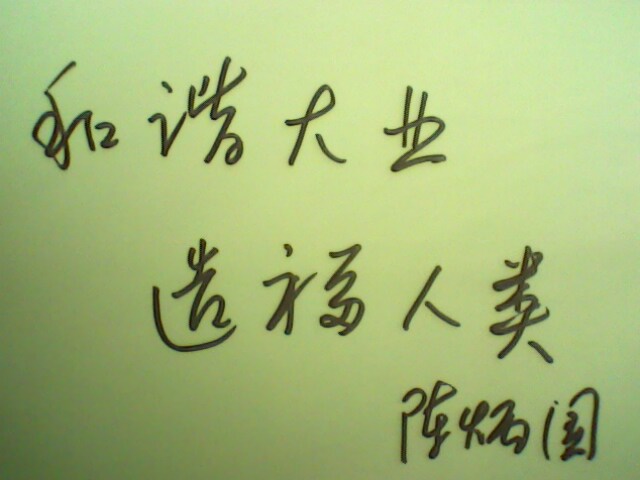 和谐大业
造福人类
陈炳国